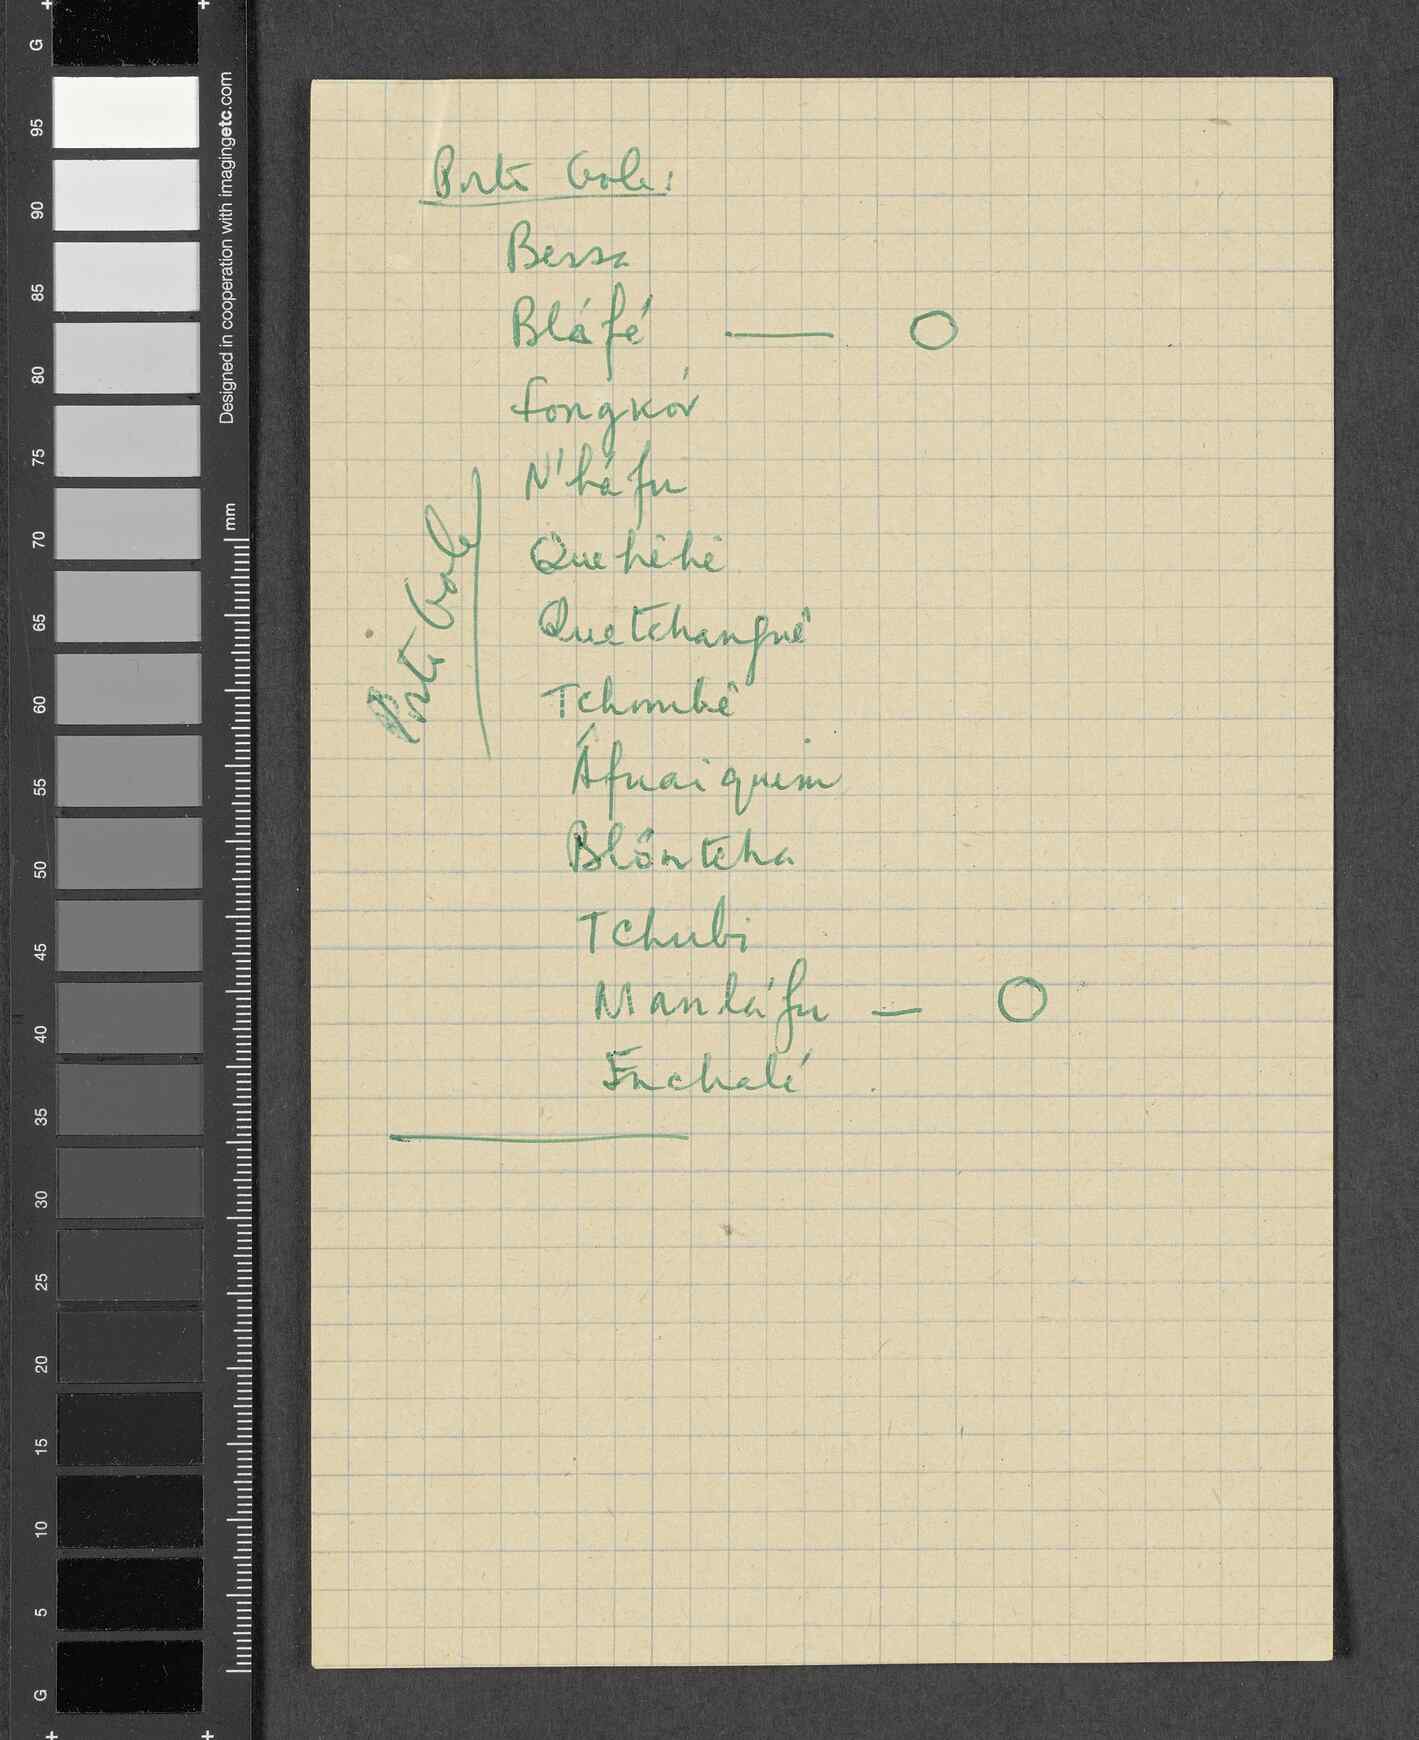 Porto Gole:
Bessa
Bláfé — O
Fongkór
N'háfu
Quehêhê
Quetchanguê
Tchombê
Áfuaiquim
Blôntcha
Tchubi
Manláfu — O
Enchalé
Porto Gole
Designed in cooperation with imagingetc.com
mm
G
95
90
85
80
75
70
65
60
55
50
45
40
35
30
25
20
15
10
5
G